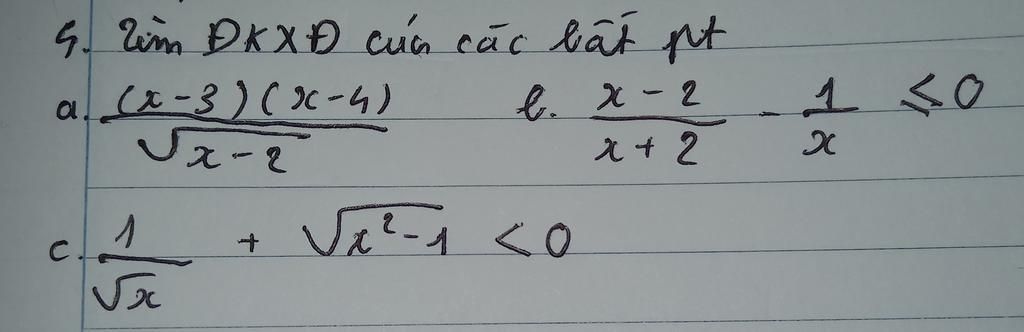 4. Tìm ĐKXĐ của các bất pt
a. \frac{(x-3)(x-4)}{\sqrt{x-2}} b. \frac{x-2}{x+2} - \frac{1}{x} ≤ 0
c. \frac{1}{\sqrt{x}} + \sqrt{x^2-1} < 0